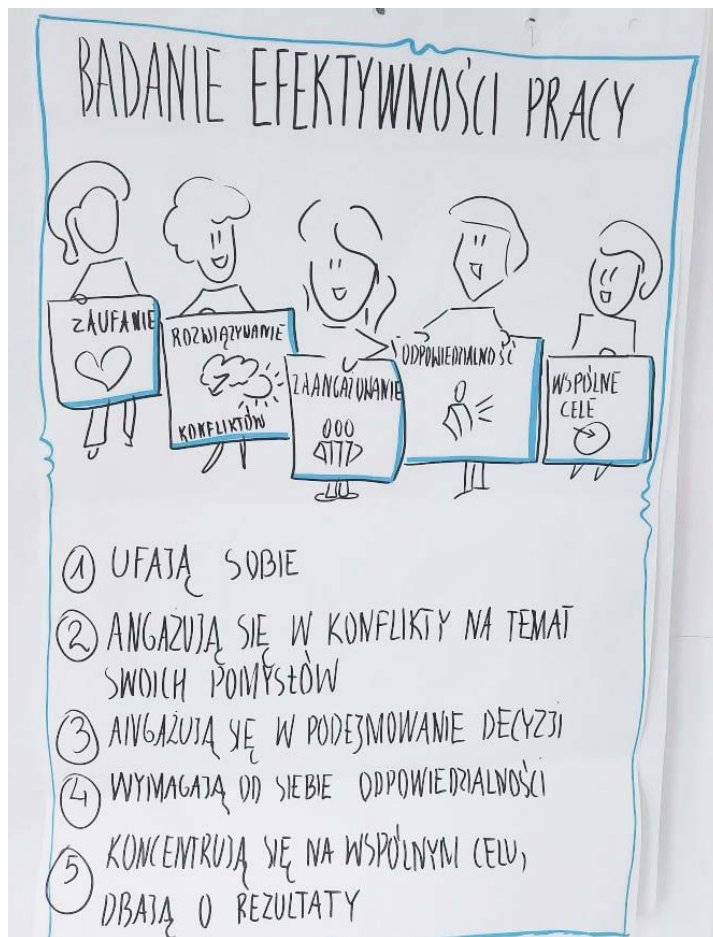 BADANIE EFEKTYWNOŚCI PRACY
ZAUFANIE
ROZWIĄZYWANIE
KONFLIKTÓW
ZAANGAŻOWANIE
ODPOWIEDZIALNOŚĆ
WSPÓLNE
CELE
1 UFAJĄ SOBIE
2 ANGAŻUJĄ SIĘ W KONFLIKTY NA TEMAT
SWOICH POMYSŁÓW
3 ANGAŻUJĄ SIĘ W PODEJMOWANIE DECYZJI
4 WYMAGAJĄ OD SIEBIE ODPOWIEDZIALNOŚCI
5 KONCENTRUJĄ SIĘ NA WSPÓLNYM CELU,
DBAJĄ O REZULTATY